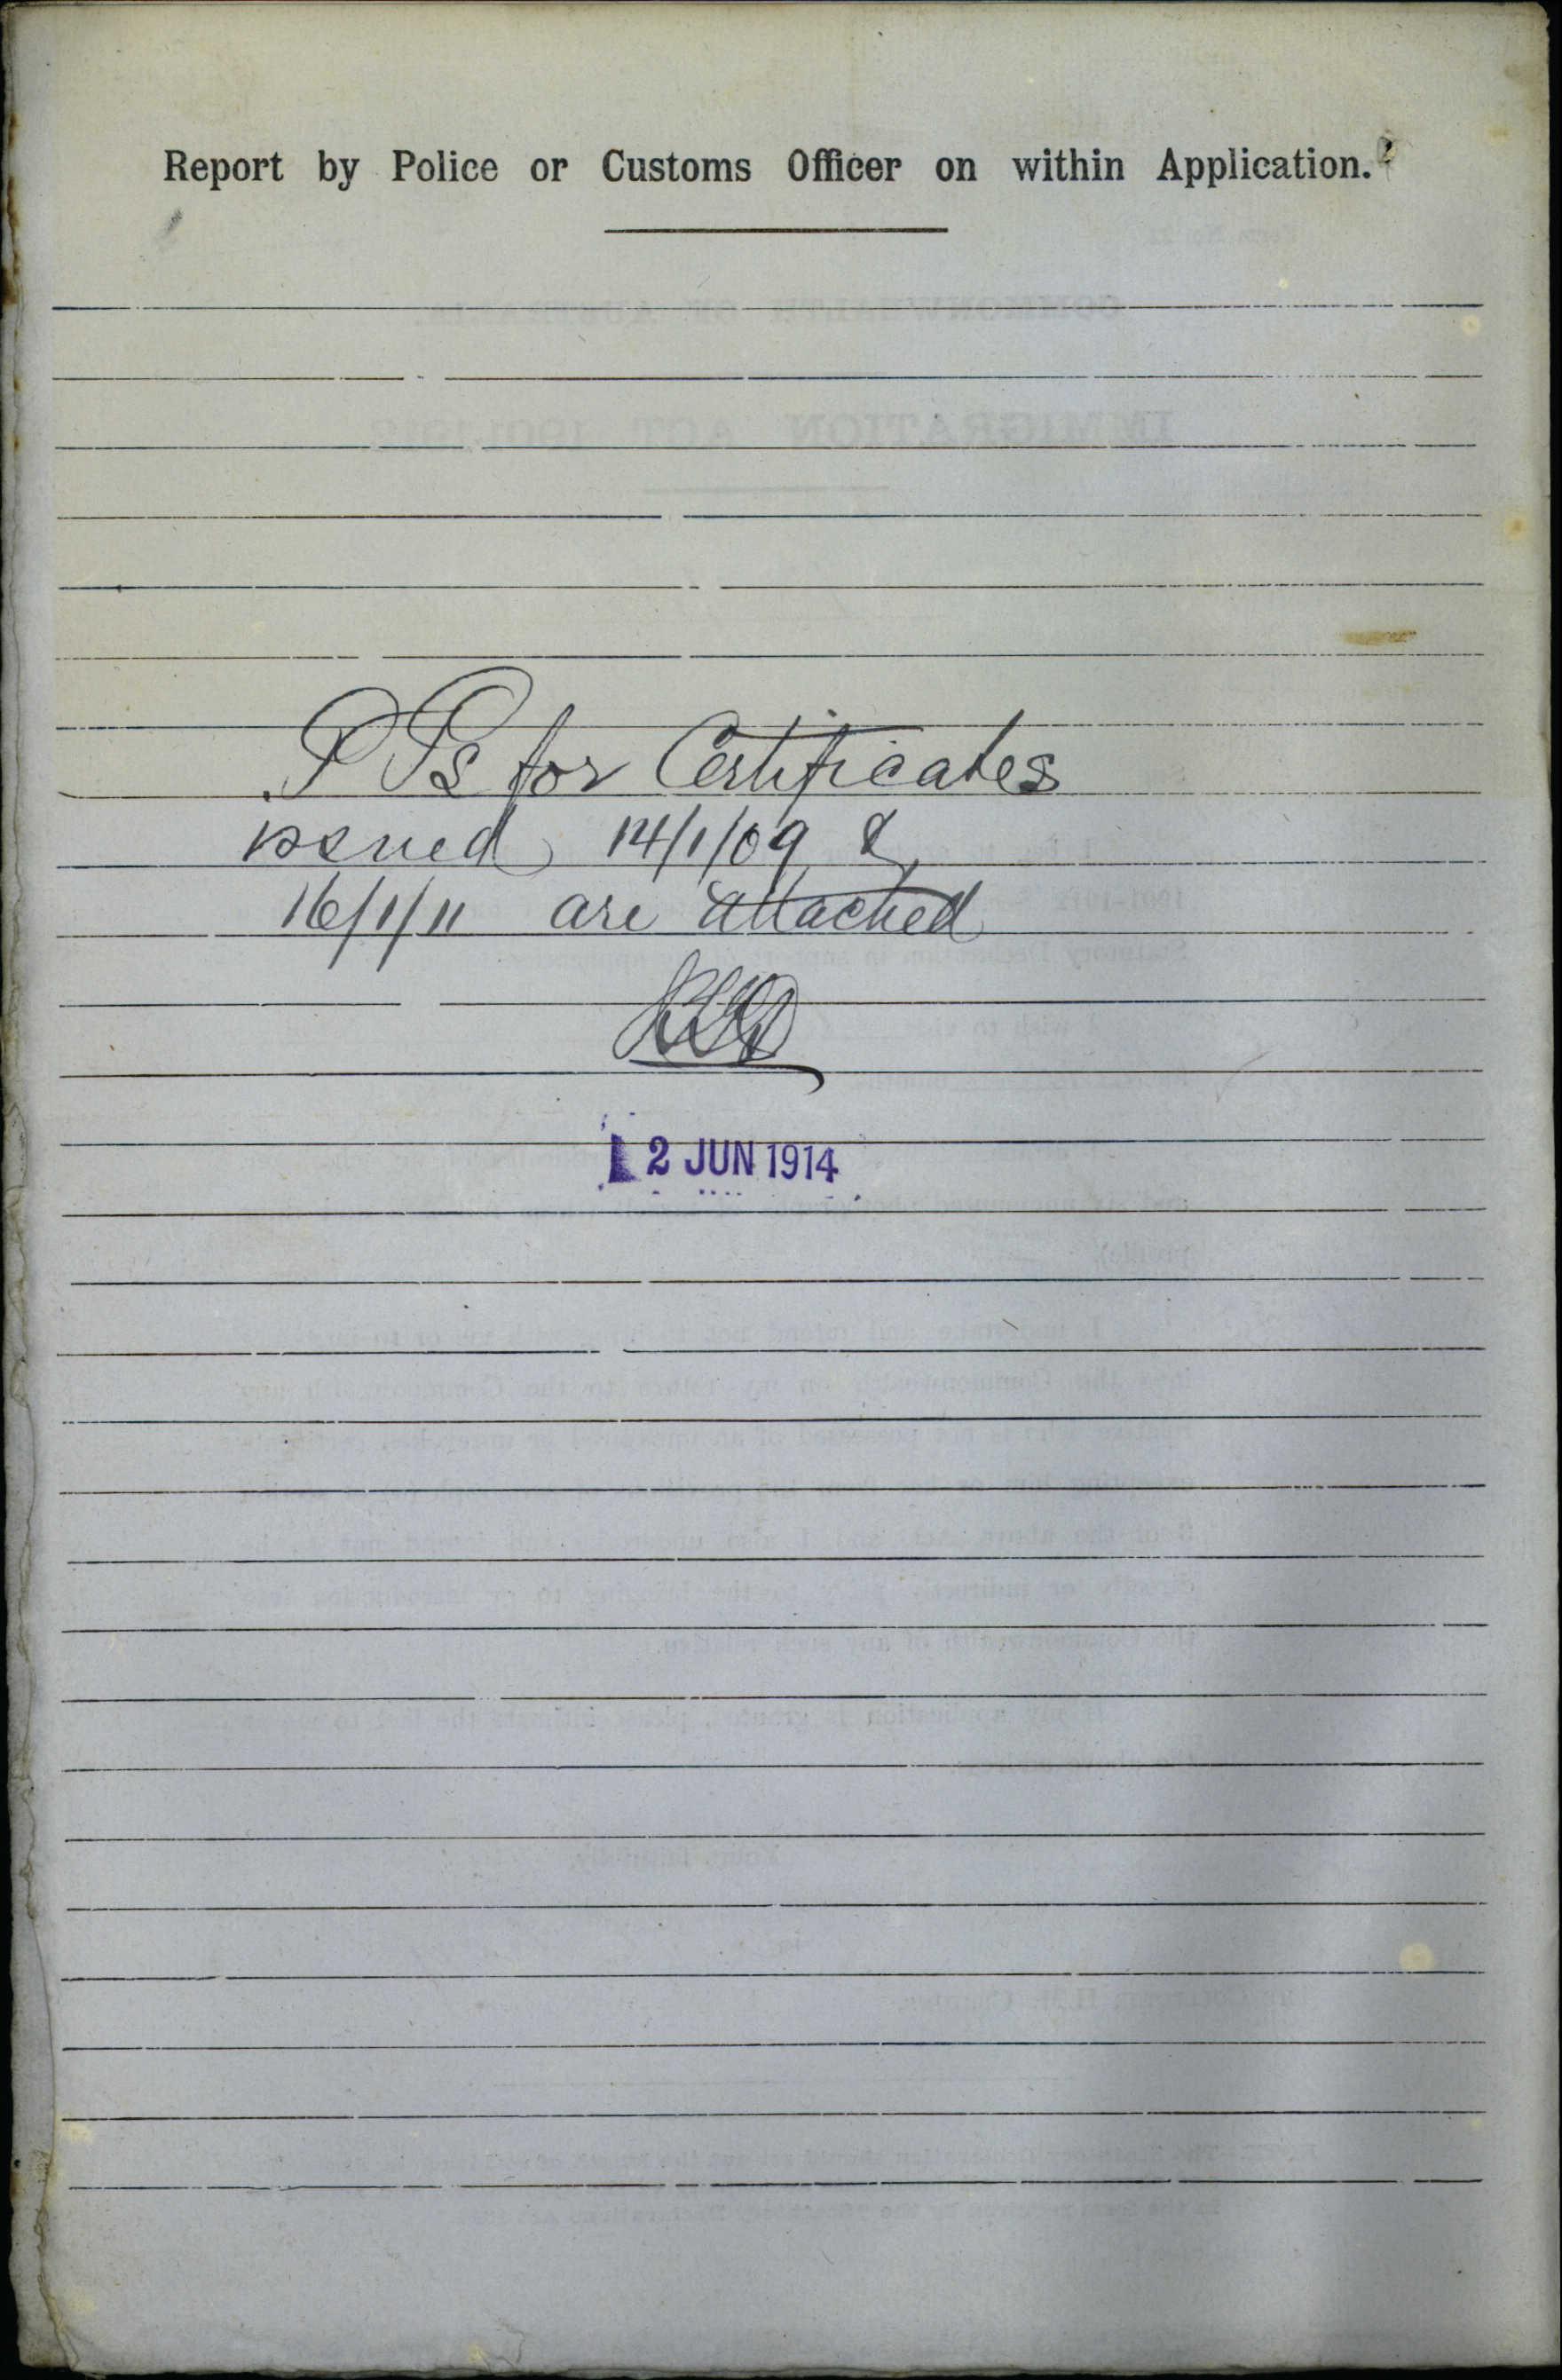 Report by Police or Customs Officer on within Application.
P Ps for Certificates
issued 14/1/09 &
16/1/11 are attached
12 JUN 1914